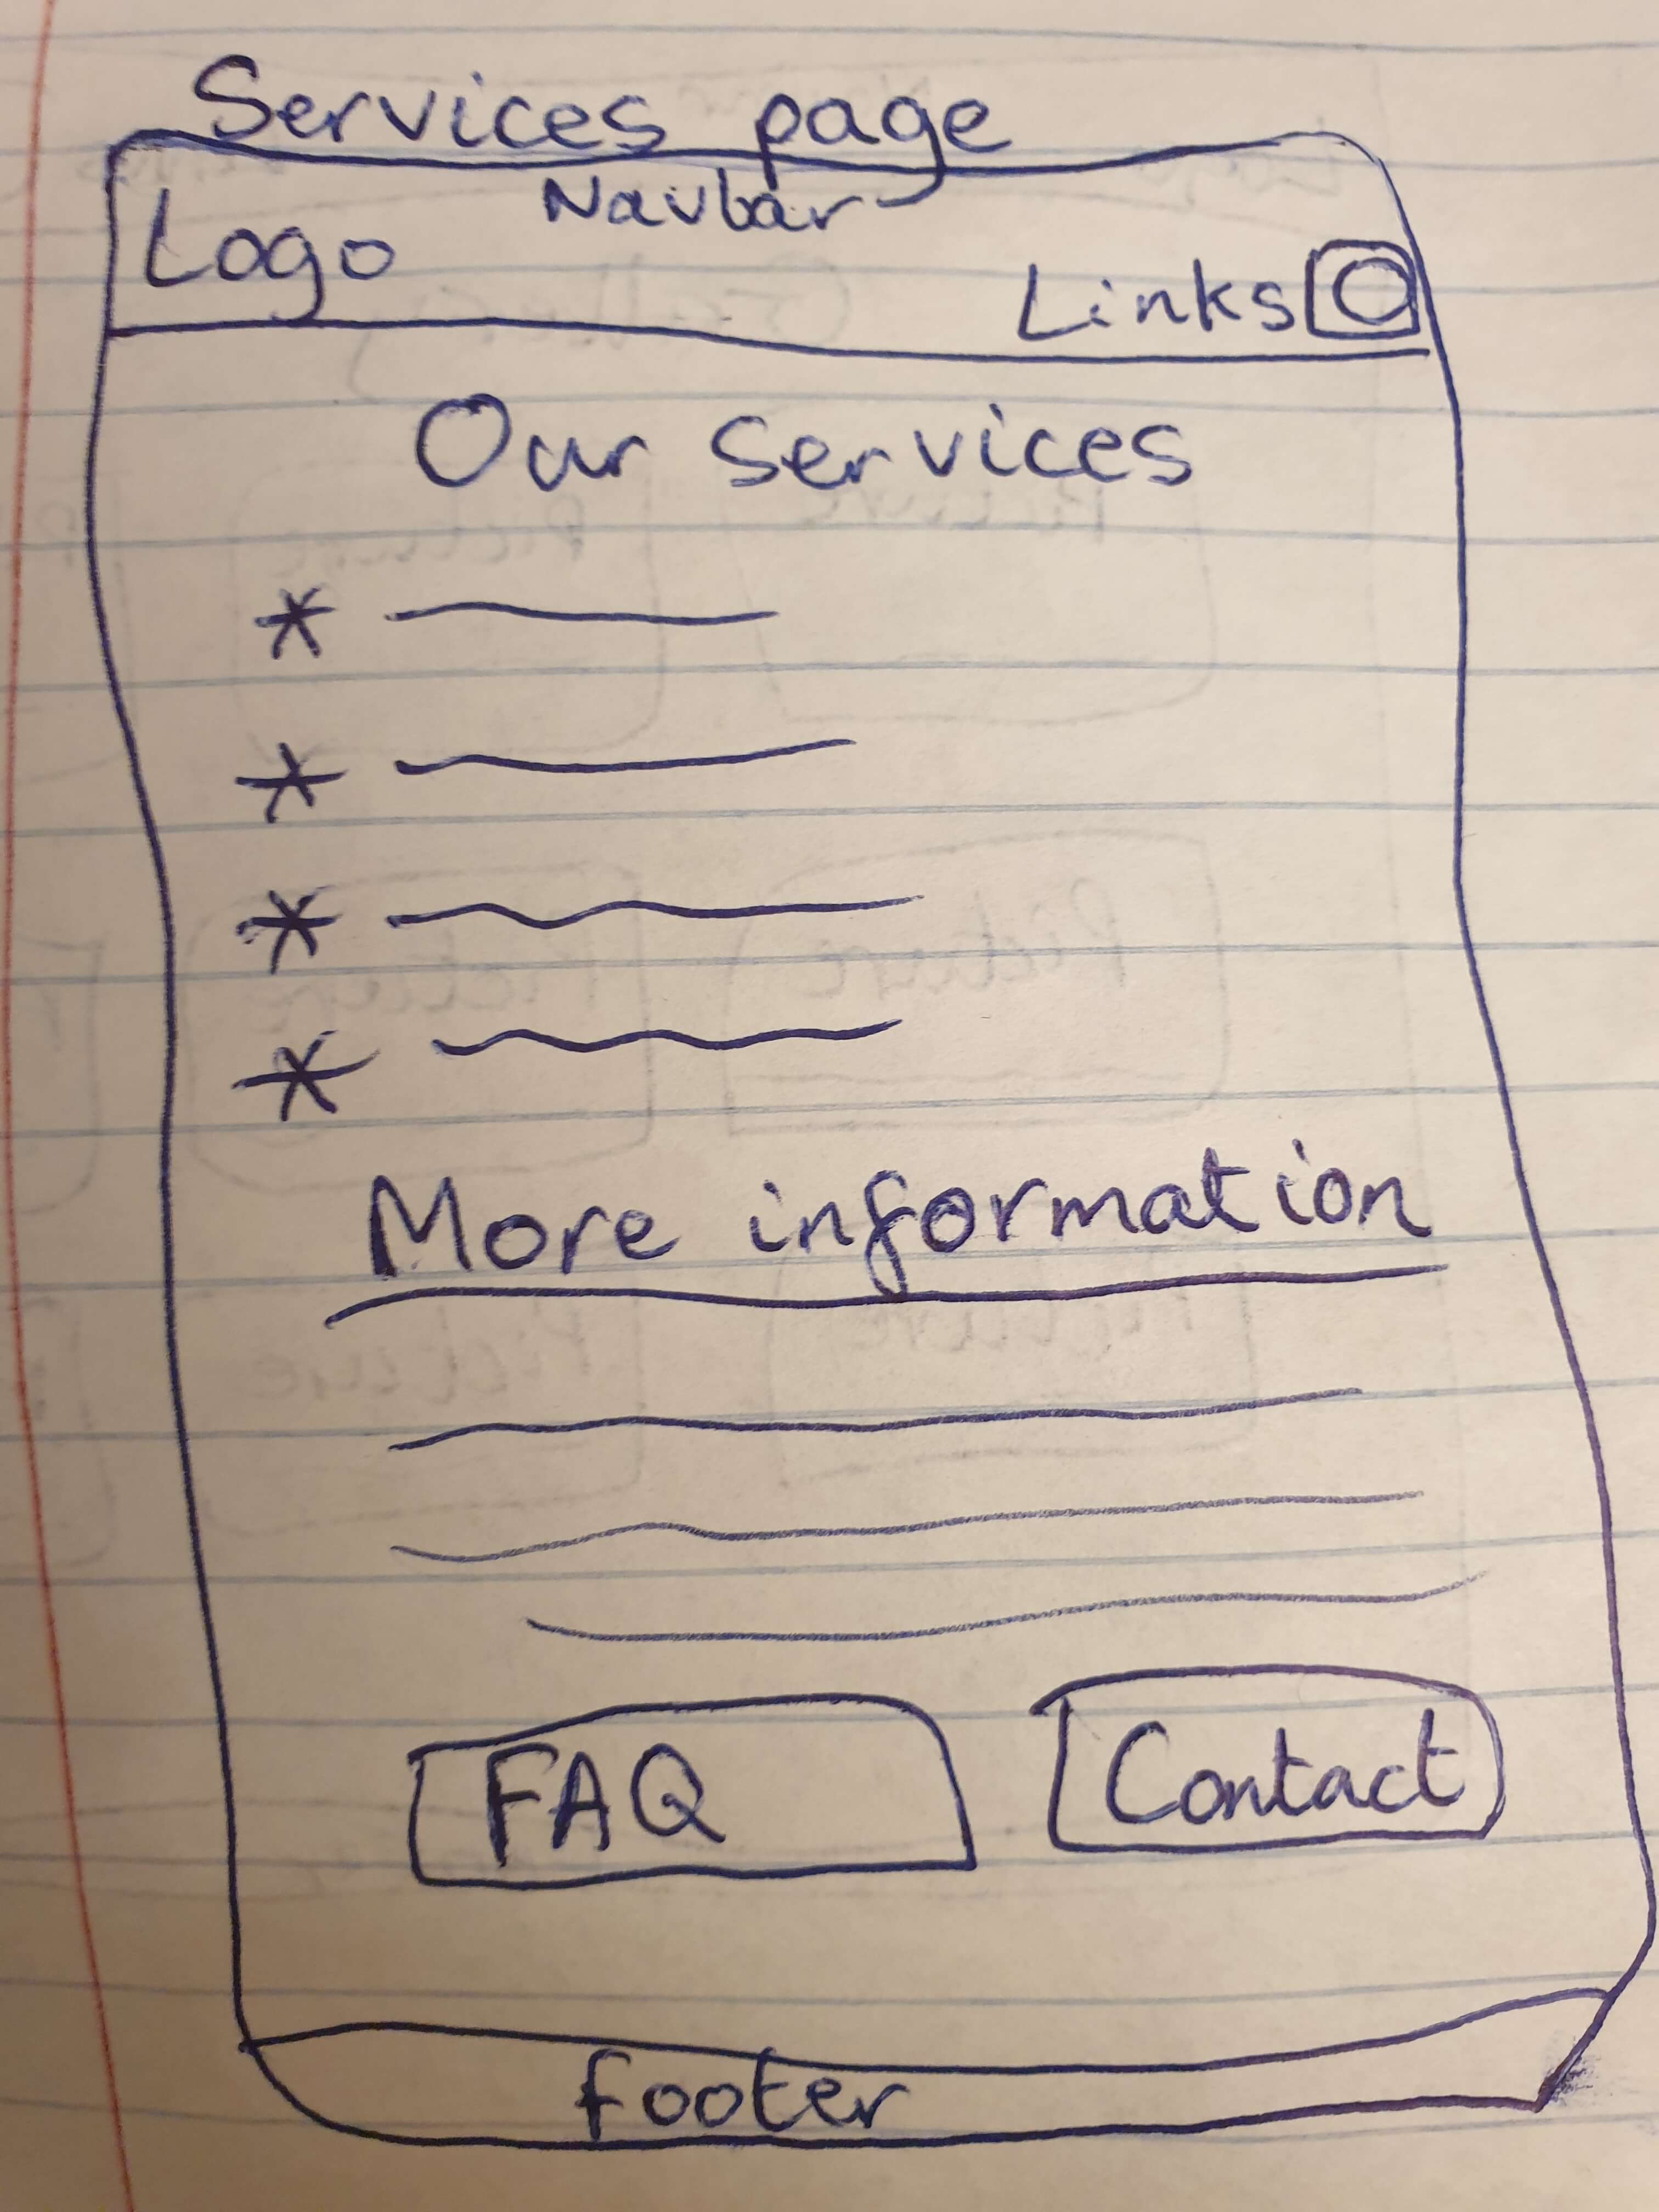 Services page
Navbar
Logo
Links
Our services
* 
* 
* 
* 
More information
FAQ
Contact
footer